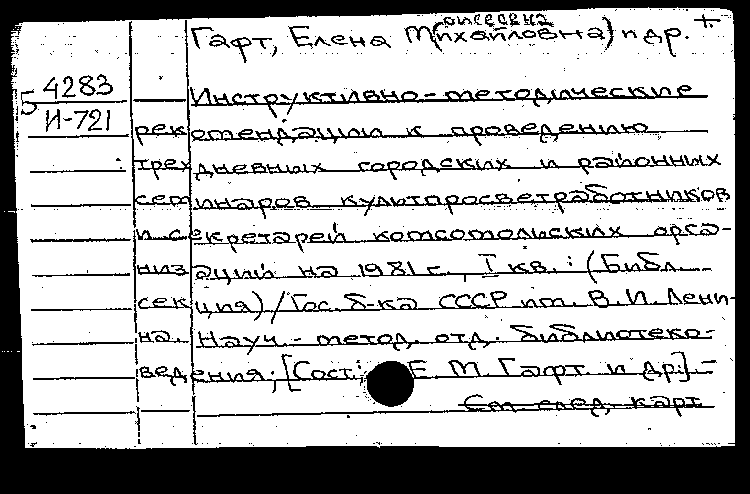 Гафт, Елена М(ихайловна) и др. +
5 4283
И-721
Инструктивно-методические
рекомендации к проведению
трехдневных городских и районных
семинаров культпросветработников
и секретарей комсомольских орга-
низаций на 1981 г., I кв. : (Библ.
секция) / Гос. б-ка СССР им. В. И. Лени-
на. Науч.-метод. отд. библиотеко-
ведения; [Сост.: Е. М. Гафт и др.]. -
См. след. карт